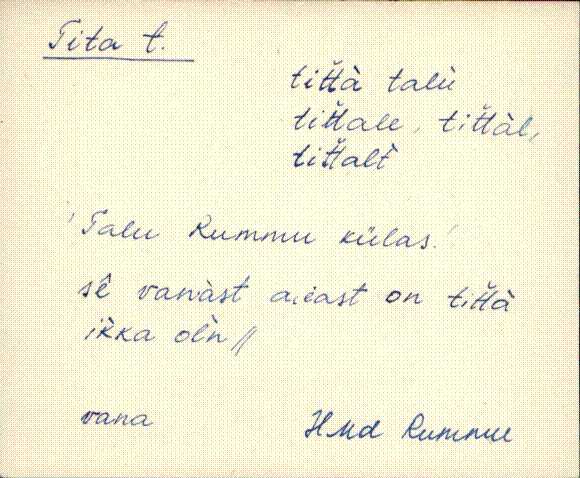 Tita t.
tit̆t̆à talù
tit̆t̆ale, tit̆t̆àl,
tit̆t̆alt̀
'Talu Rummu külas.'
sê vanàst aieast on tit̆t̆à
ikka olǹ //
vana HMd Rummu